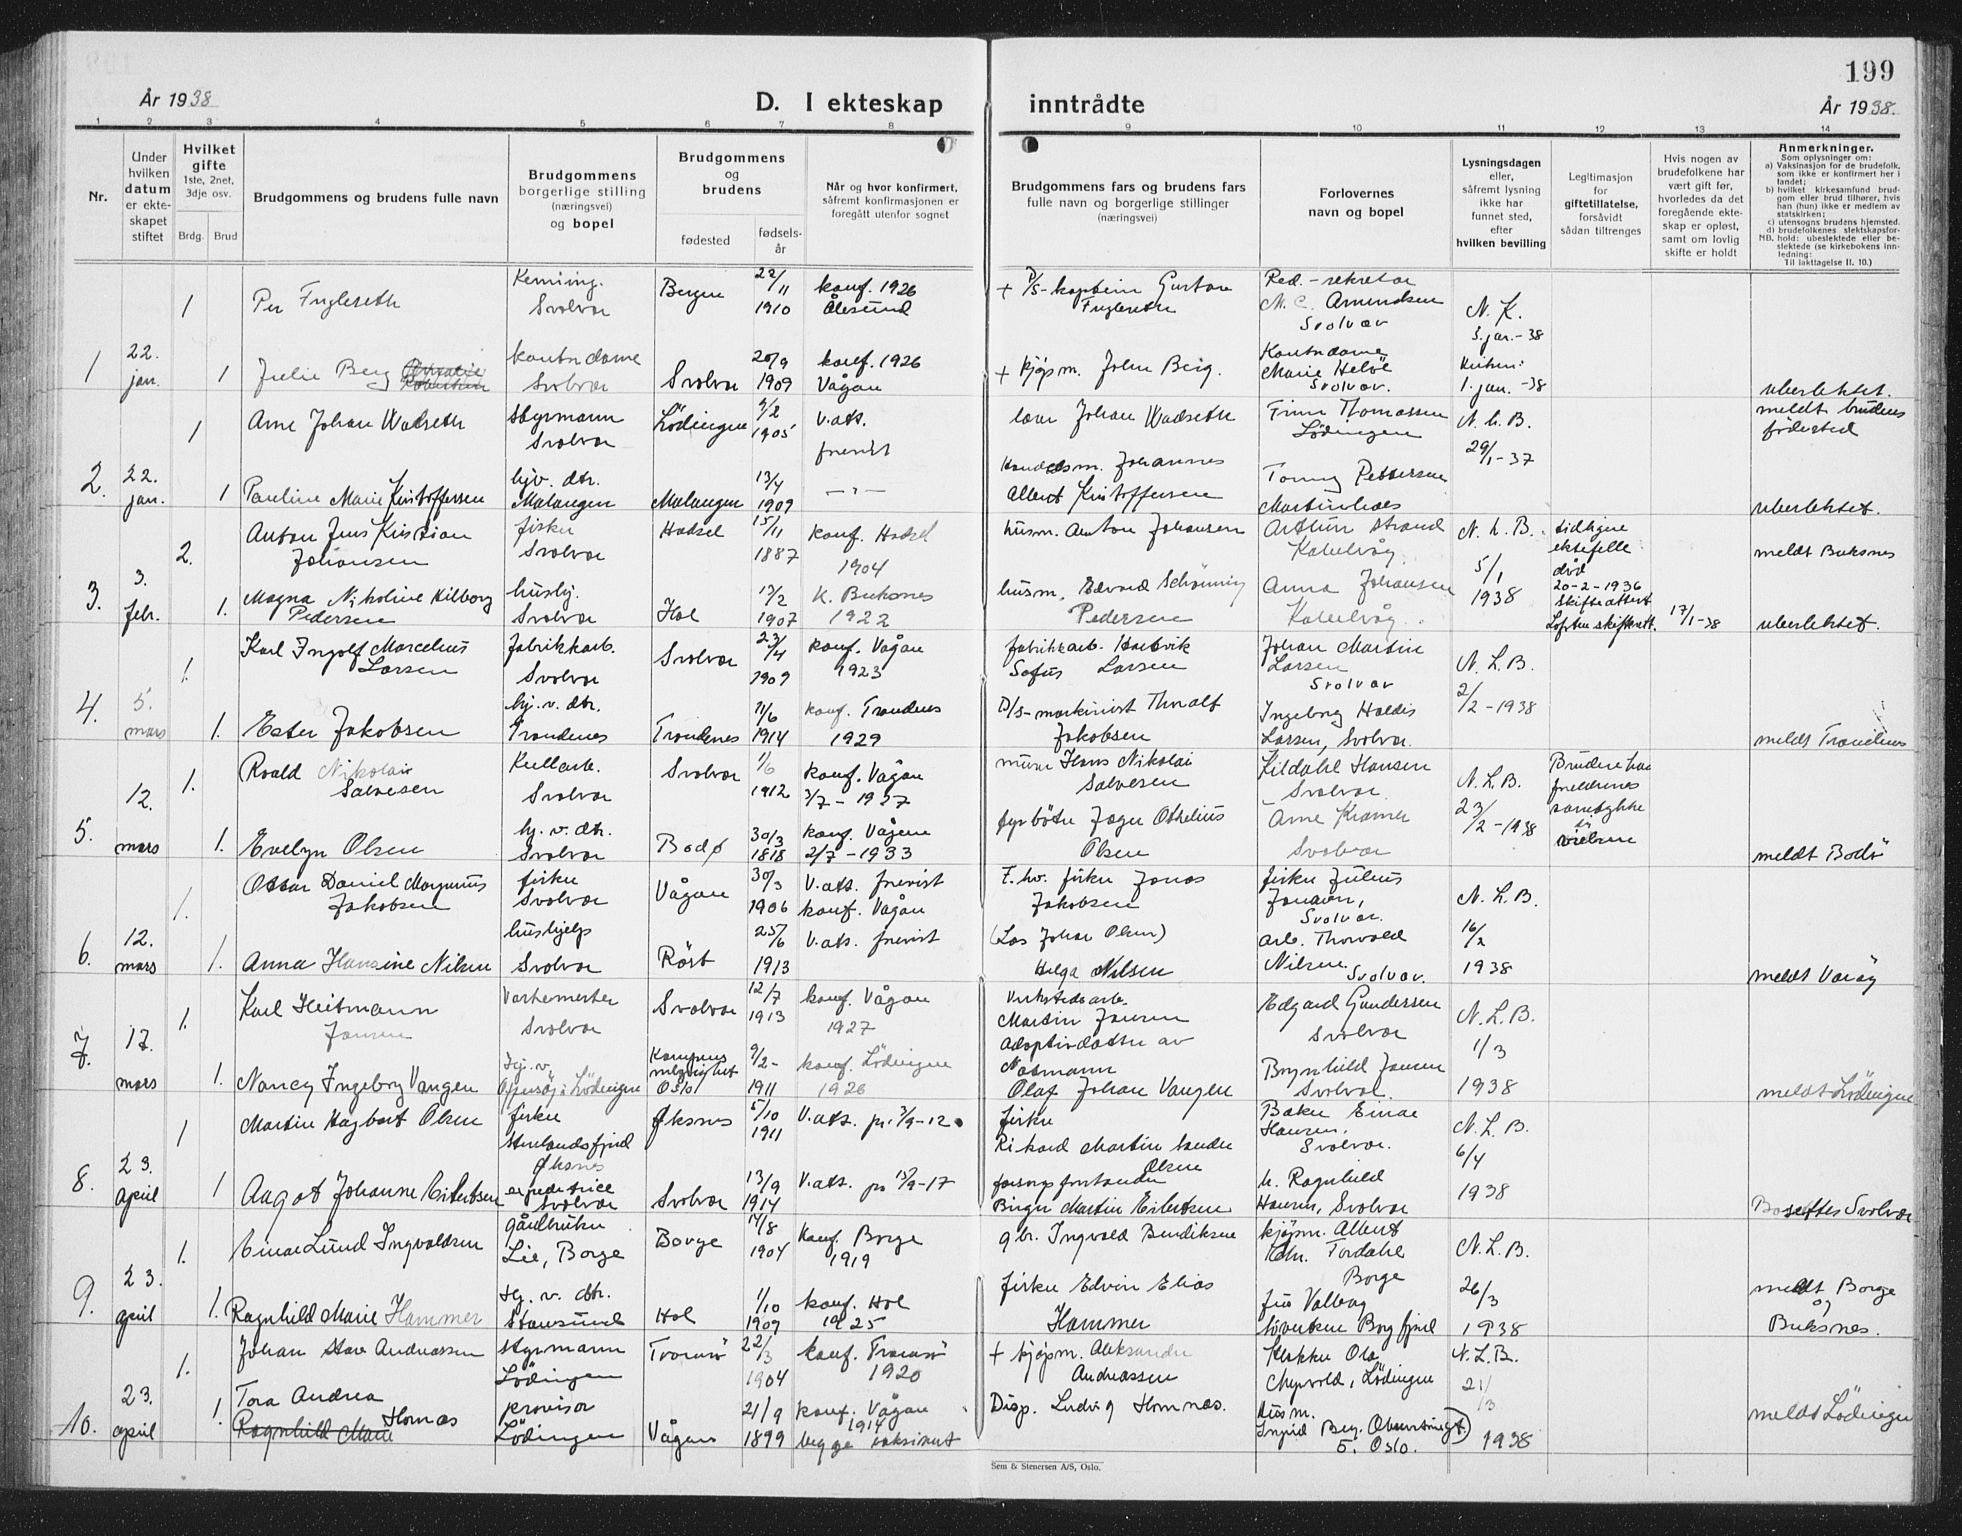 199
År 1938
D. I ekteskap inntrådte
År 1938.
1 2 3 4 5 6 7 8 9 10 11 12 13 14
Nr.
Under
hvilken
datum
er ekte-
skapet
stiftet
Hvilket
gifte
1ste, 2net,
3dje osv.
Brdg. Brud
Brudgommens og brudens fulle navn
Brudgommens
borgerlige stilling
(næringsvei)
og bopel
Brudgommens
og
brudens
fødested
fødsels-
år
Når og hvor konfirmert,
såfremt konfirmasjonen er
foregått utenfor sognet
Brudgommens fars og brudens fars
fulle navn og borgerlige stillinger
(næringsvei)
Forlovernes
navn og bopel
Lysningsdagen
eller,
såfremt lysning
ikke har
funnet sted,
efter
hvilken bevilling
Legitimasjon
for
giftetillatelse,
forsåvidt
sådan tiltrenges
Hvis nogen av
brudefolkene har
vært gift før,
hvorledes da det
foregående ekte-
skap er opløst,
samt om lovlig
skifte er holdt
Anmerkninger.
Som oplysninger om:
a) Vaksinasjon for de brudefolk,
som ikke er konfirmert her i
landet;
b) hvilket kirkesamfund brud-
gom eller brud tilhører, hvis
han (hun) ikke er medlem av
statskirken;
c) utensogns brudens hjemsted.
d) brudefolkenes slektskapsfor-
NB. hold: ubeslektede eller be-
slektede (se kirkebokens inn-
ledning:
Til iakttagelse II. 10.)
1 Per Fugleseth
Svolvær
Bergen
22/11
1910
konf. 1926
Ålesund
+ D/S-kaptein Gustav
Fugleseth
Red.-sekretær
N. C. Amundsen
Svolvær
N. K.
5. jan.-38
1
22.
jan.
1 Julie Berg
kontordame
Svolvær
Svolvær
20/9
1909
konf. 1926
Vågan
+ kjøpm. John Berg.
Kontordame
Marie Heløe
Svolvær.
1. jan. -38
ubeslektet.
1 Arne Johan Wadseth
styrmann
Svolvær
Lödingen
9/2
1905
v. att.
fremvist
lærer Johan Wadseth
Finn Thomassen
Lödingen
N. L. B.
29/1-37
meldt brudens
fødested
2.
22.
jan.
1 Pauline Marie Kristoffersen
hjv. dtr.
Malangen
Malangen
13/4
1909
— " —
Handelsm. Johannes
Albert Kristoffersen
Tonny Pettersen
ubeslektet.
2. Anton Jens Kristian
Johansen
fisker
Svolvær
Hadsel
15/11
1887
konf. Hadsel
1904
husm. Anton Johansen
Arthur Strand
Kabelvåg
N. L. B.
5/1
1938
tidligere
ektefelle
død
20-2-1936
Skifteattest
Lofoten skifterett.
17/1-38
meldt Buksnes
3.
3.
febr.
1. Magna Nikoline Kilborg
Pedersen
hushj.
Svolvær
Hol
13/2
1907
K. Buksnes
1922
husm. Edvard Schönning
Pedersen
Anna Johansen
Kabelvåg.
ubeslektet.
1. Karl Ingolf Marcelius
Larsen
Fabrikkarb.
Svolvær
Svolvær
23/4
1909
konf. Vågan
1923
fabrikkarb. Hartvik
Sofus Larsen
Johan Martin
Larsen
Svolvær
N. L. B.
2/2-1938
4.
5.
mars
1. Ester Jakobsen
hj. v. dtr.
Trondenes
Trondenes
11/6
1914
konf. Trondenes
1929
D/S-maskinist Thoralf
Jakobsen
Ingeborg Haldis
Larsen, Svolvær.
meldt Trondenes
1. Roald Nikolai
Salvesen
Kullarb.
Svolvær
Svolvær
1/6
1912
konf. Vågan
3/7-1927
murer Hans Nikolai
Salvesen
Kildahl Hansen
Svolvær
N. L. B.
23/2-1938
Bruden har
foreldrenes
samtykke
til
vielsen
5.
12.
mars
1. Evelyn Olsen
hj. v. dtr.
Svolvær
Bodø
30/3
1818
konf. Vågan
2/7-1933
fyrböter Jager Othelius
Olsen
Arne Kramer
Svolvær
meldt Bodö
1. Ottar Daniel Magnus
Jakobsen
fisker
Svolvær
Vågan
30/3
1906
V. att. frevist
konf. Vågan
F. hv. fisker Jonas
Jakobsen
fisker Julius
Jonasen,
Svolvær.
N. L. B.
16/2
1938
6.
12.
mars
1. Anna Hansine Nilsen
hushjelp
Svolvær
Röst
25/6
1913
V. att. frevist
(Lars Johan Olsen)
Helga Nilsen
arb. Thorvald
Nilsen Svolvær.
meldt Væröy
1. Karl Heitmann
Jensen
Varkemester
Svolvær
Svolvær
12/7
1913
konf. Vågan
1927
Verkstedsarb.
Martin Jensen
Edgard Gundersen
Svolvær
N. L. B.
1/3
1938
7.
17.
mars
1. Nancy Ingeborg Vangen
hj. v.
Kampens
menighet
Oslo
9/2-
1911
konf. Lödingen
1926
adoptivdatter av
Notmann
Olaf Johan Vangen
Brynhild Jensen
Svolvær.
meldt Lödingen
1 Martin Hagbart Olsen
fisker
Steinlandsfjord
Øksnes
Øksnes
5/10
1911
V. att. pr. 3/9-12.
fisker
Rikard Martin Sander
Olsen
Baker Einar
Hansen,
Svolvær.
N. L. B.
6/4
1938
8.
23.
april
1 Aagot Johanne Eilertsen
expeditrice
Svolvær
Svolvær
13/9
1914
V. att. pr 13/9-17
forsorgsforstander
Birger Martin Eilertsen
fr. Ragnhild
Hansen, Svolvær
Bosettes Svolvær
1. Einar Lund Ingvaldsen
gårdbruker
Lie, Borge
Borge
14/8
1904
Konf. Borge
1919
gbr. Ingvald Bendiksen
kjøpm. Albert
Tordahl
Borge
N. L. B.
26/3
1938
9.
23.
april
1. Ragnhild Marie Hammer
hj. v. dtr.
Stamsund
Hol
1/10
1909
konf. Hol
1925
fisker Edvin Elias
Hammer
fru Valborg
Borgfjord
meldt Borge
og
Buksnes.
1. Johan Stav Andreassen
styrmann
Lödingen
Tromsö
22/3
1904
konf. Tromsö
1920
+ kjøpm. Aleksander
Andreassen
Klokker Ola
Lödingen
N. L. B.
21/3
1938
10.
23.
april
1. Tora Andrea
Ragnhild Marie Hornæs
provisor
Lödingen
Vågan
21/9
1899
konf. Vågan
1914
begge vaksinert
Disp. Ludvig Hornnæs.
Husm.
Ingrid Berg. Observatoriegt.
5. Oslo.
meldt Lödingen
Sem & Stenersen A/S, Oslo.